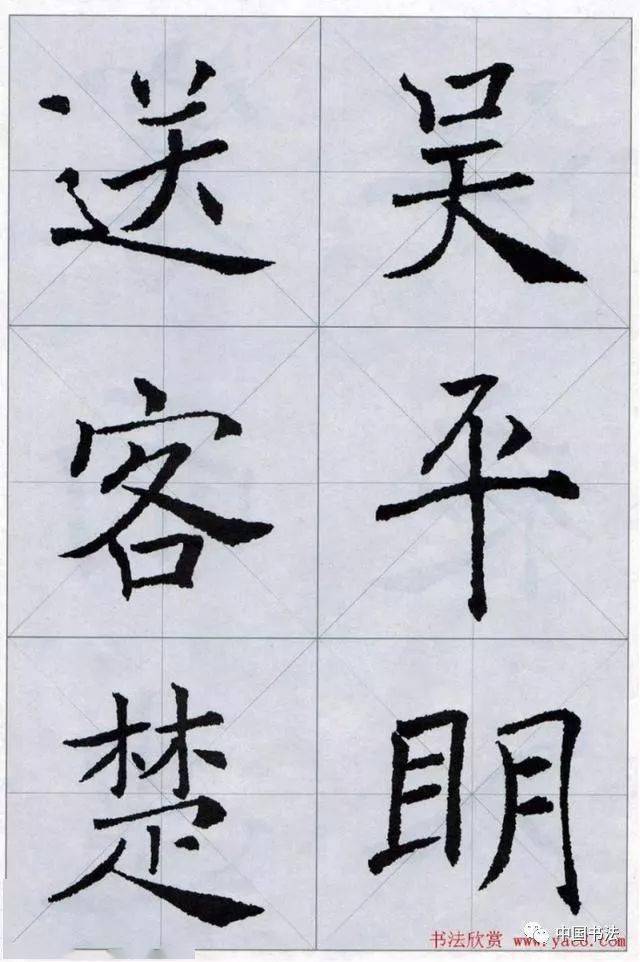 吴平明
送客楚
书法欣赏 www.yac8.com
中国书法